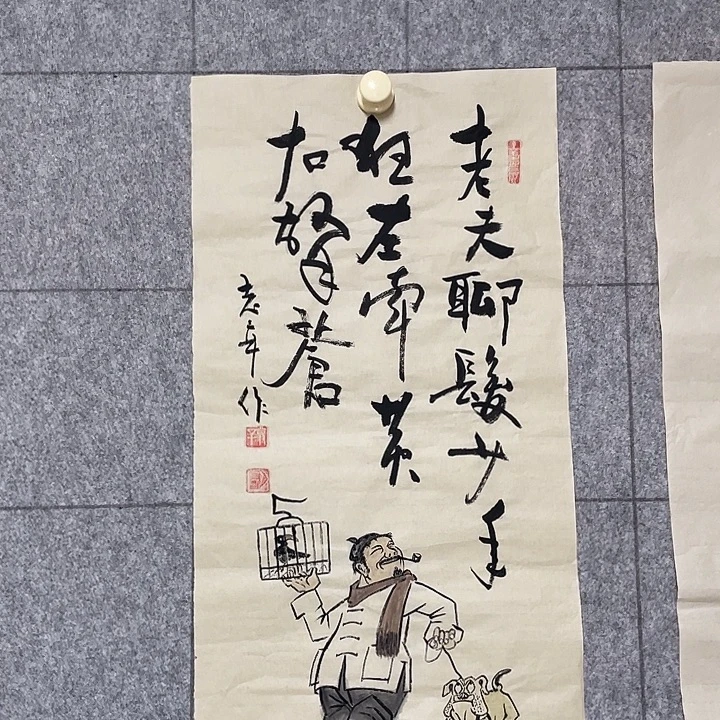 老夫聊髮少年
狂左牽黃
右擎蒼
志军作